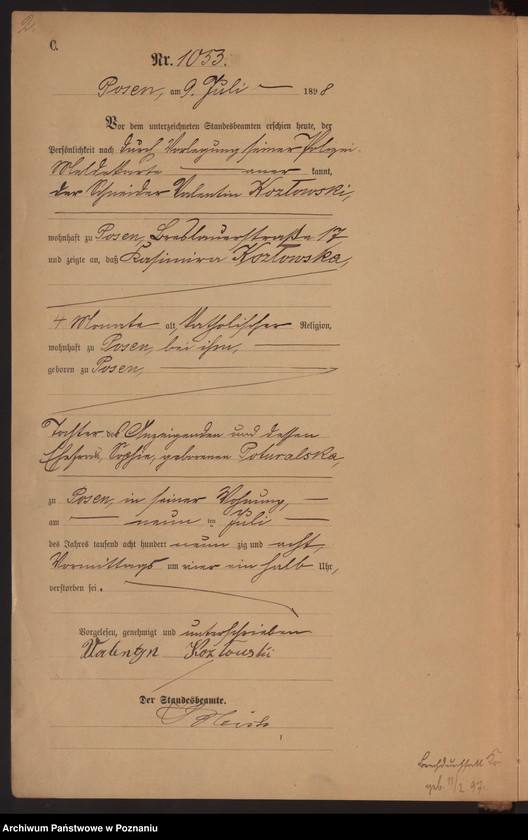 2.
C.
Nr. 1053.
Posen, am 9. Juli 1898
Vor dem unterzeichneten Standesbeamten erschien heute, der
Persönlichkeit nach durch Vorlegung seiner Polizei-
Meldekarte aner kannt,
der Schneider Valentin Kozłowski,
wohnhaft zu Posen, Breslauerstraße 17
und zeigte an, daß Kasimira Kozłowska,
4 Monate alt, katholischer Religion,
wohnhaft zu Posen, bei ihm,
geboren zu Posen,
Tochter des Anzeigenden und dessen
Ehefrau, Sophie, geborenen Poturalska,
zu Posen, in seiner Wohnung,
am neun ten Juli
des Jahres tausend acht hundert neun zig und acht,
Vormittags um vier ein halb Uhr,
verstorben sei.
Vorgelesen, genehmigt und unterschrieben
Walentyn Kozłowski
Der Standesbeamte.
Brechdurchfall
geb. 97.
Archiwum Państwowe w Poznaniu